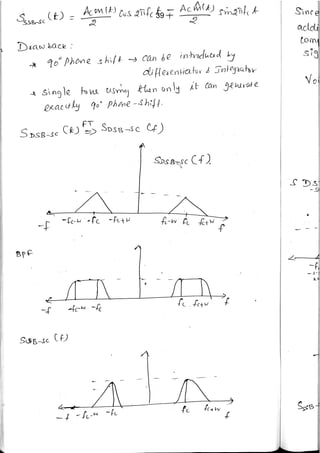 S_SSB-SC (t) = Ac m(t)/2 cos 2πfc t ∓ Ac m̂(t)/2 sin 2πfc t
Drawback :
90° Phone shift → can be introduced by
differentiator & Integrator
single tone using then only it can generate
exactly 90° phone-shift.
S_DSB-SC (t) FT⇒ S_DSB-SC (f)
S_DSB-SC (f)
-f -fc-w -fc -fc+w fc-w fc fc+w f
BPF
-f -fc-w -fc fc fc+w f
S_SSB-SC (f)
-f -fc-w -fc fc fc+w f
Since
addi
SSB